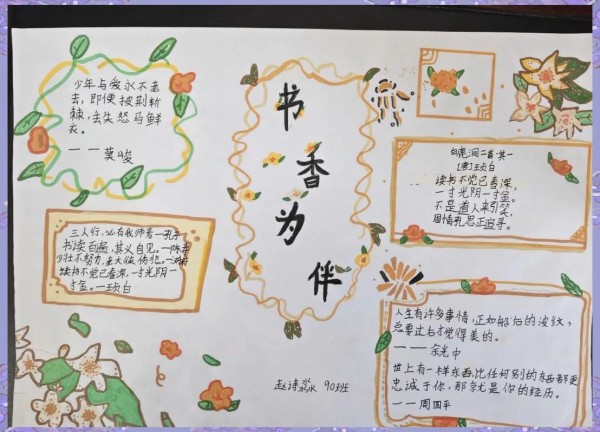 少年与爱永不老
去，即便披荆斩
棘，丢失怒马鲜
衣。
——莫峻
三人行，必有我师焉一孔子
书读百遍，其义自见。一陈寿
少壮不努力，老大徒伤悲。
读书不觉已春深，一寸光阴一
寸金。一王贞白
书香为伴
白鹿洞二首·其一
[唐]王贞白
读书不觉已春深，
一寸光阴一寸金。
不是道人来引笑，
周情孔思正追寻。
人生有许多事情，正如船后的波纹，
总要过后才觉得美的。
——余光中
世上有一样东西，比任何别的东西都更
忠诚于你，那就是你的经历。
——周国平
赵诗 90班